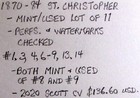 1870-84 ST. CHRISTOPHER
- MINT/USED LOT OF 11
- PERFS. & WATERMARKS
CHECKED
#1, 3, 4, 6-9, 13, 14
- BOTH MINT & USED
OF #8 AND #9
- 2020 SCOTT CV $136.60 USD